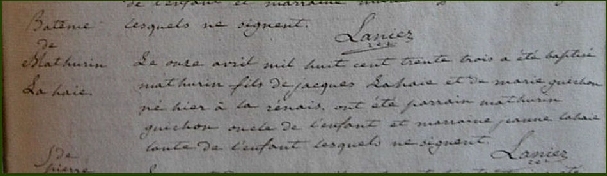 de l'enfant et marraine
lesquels ne signent.
Lanier
Bateme
de
Mathurin
Lahaie
Le onze avril mil huit cent trente trois a été baptisé
mathurin fils de jacques Lahaie et de marie guerhon
né hier à la rénais, ont été parrain mathurin
guerhon oncle de l'enfant et marraine jeanne lahaie
tante de l'enfant lesquels ne signent.
Lanier
de
pierre